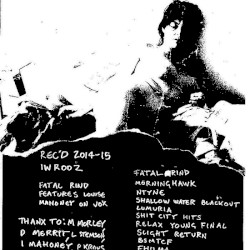 REC'D 2014-15
IWROOZ
FATAL RIND
FEATURES LOUISE
MAHONEY ON VOX
THANX TO: M MORLEY
D MERRITT
I MAHONEY
FATAL RIND
MORNINGHAWK
NTYNE
SHALLOW WATER BLACKOUT
LUMURIA
SHIT CITY HITS
RELAX YOUNG FINAL
SLIGHT RETURN
BSMTCP